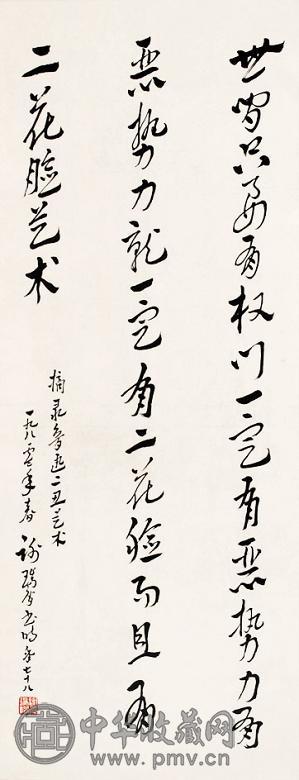 世间只要有权门一定有恶势力有
恶势力就一定有二花脸而且有
二花脸艺术
摘录鲁迅二丑艺术
一九八零年春 谢瑞阶书 时年七十八
中华收藏网
www.pmv.cn